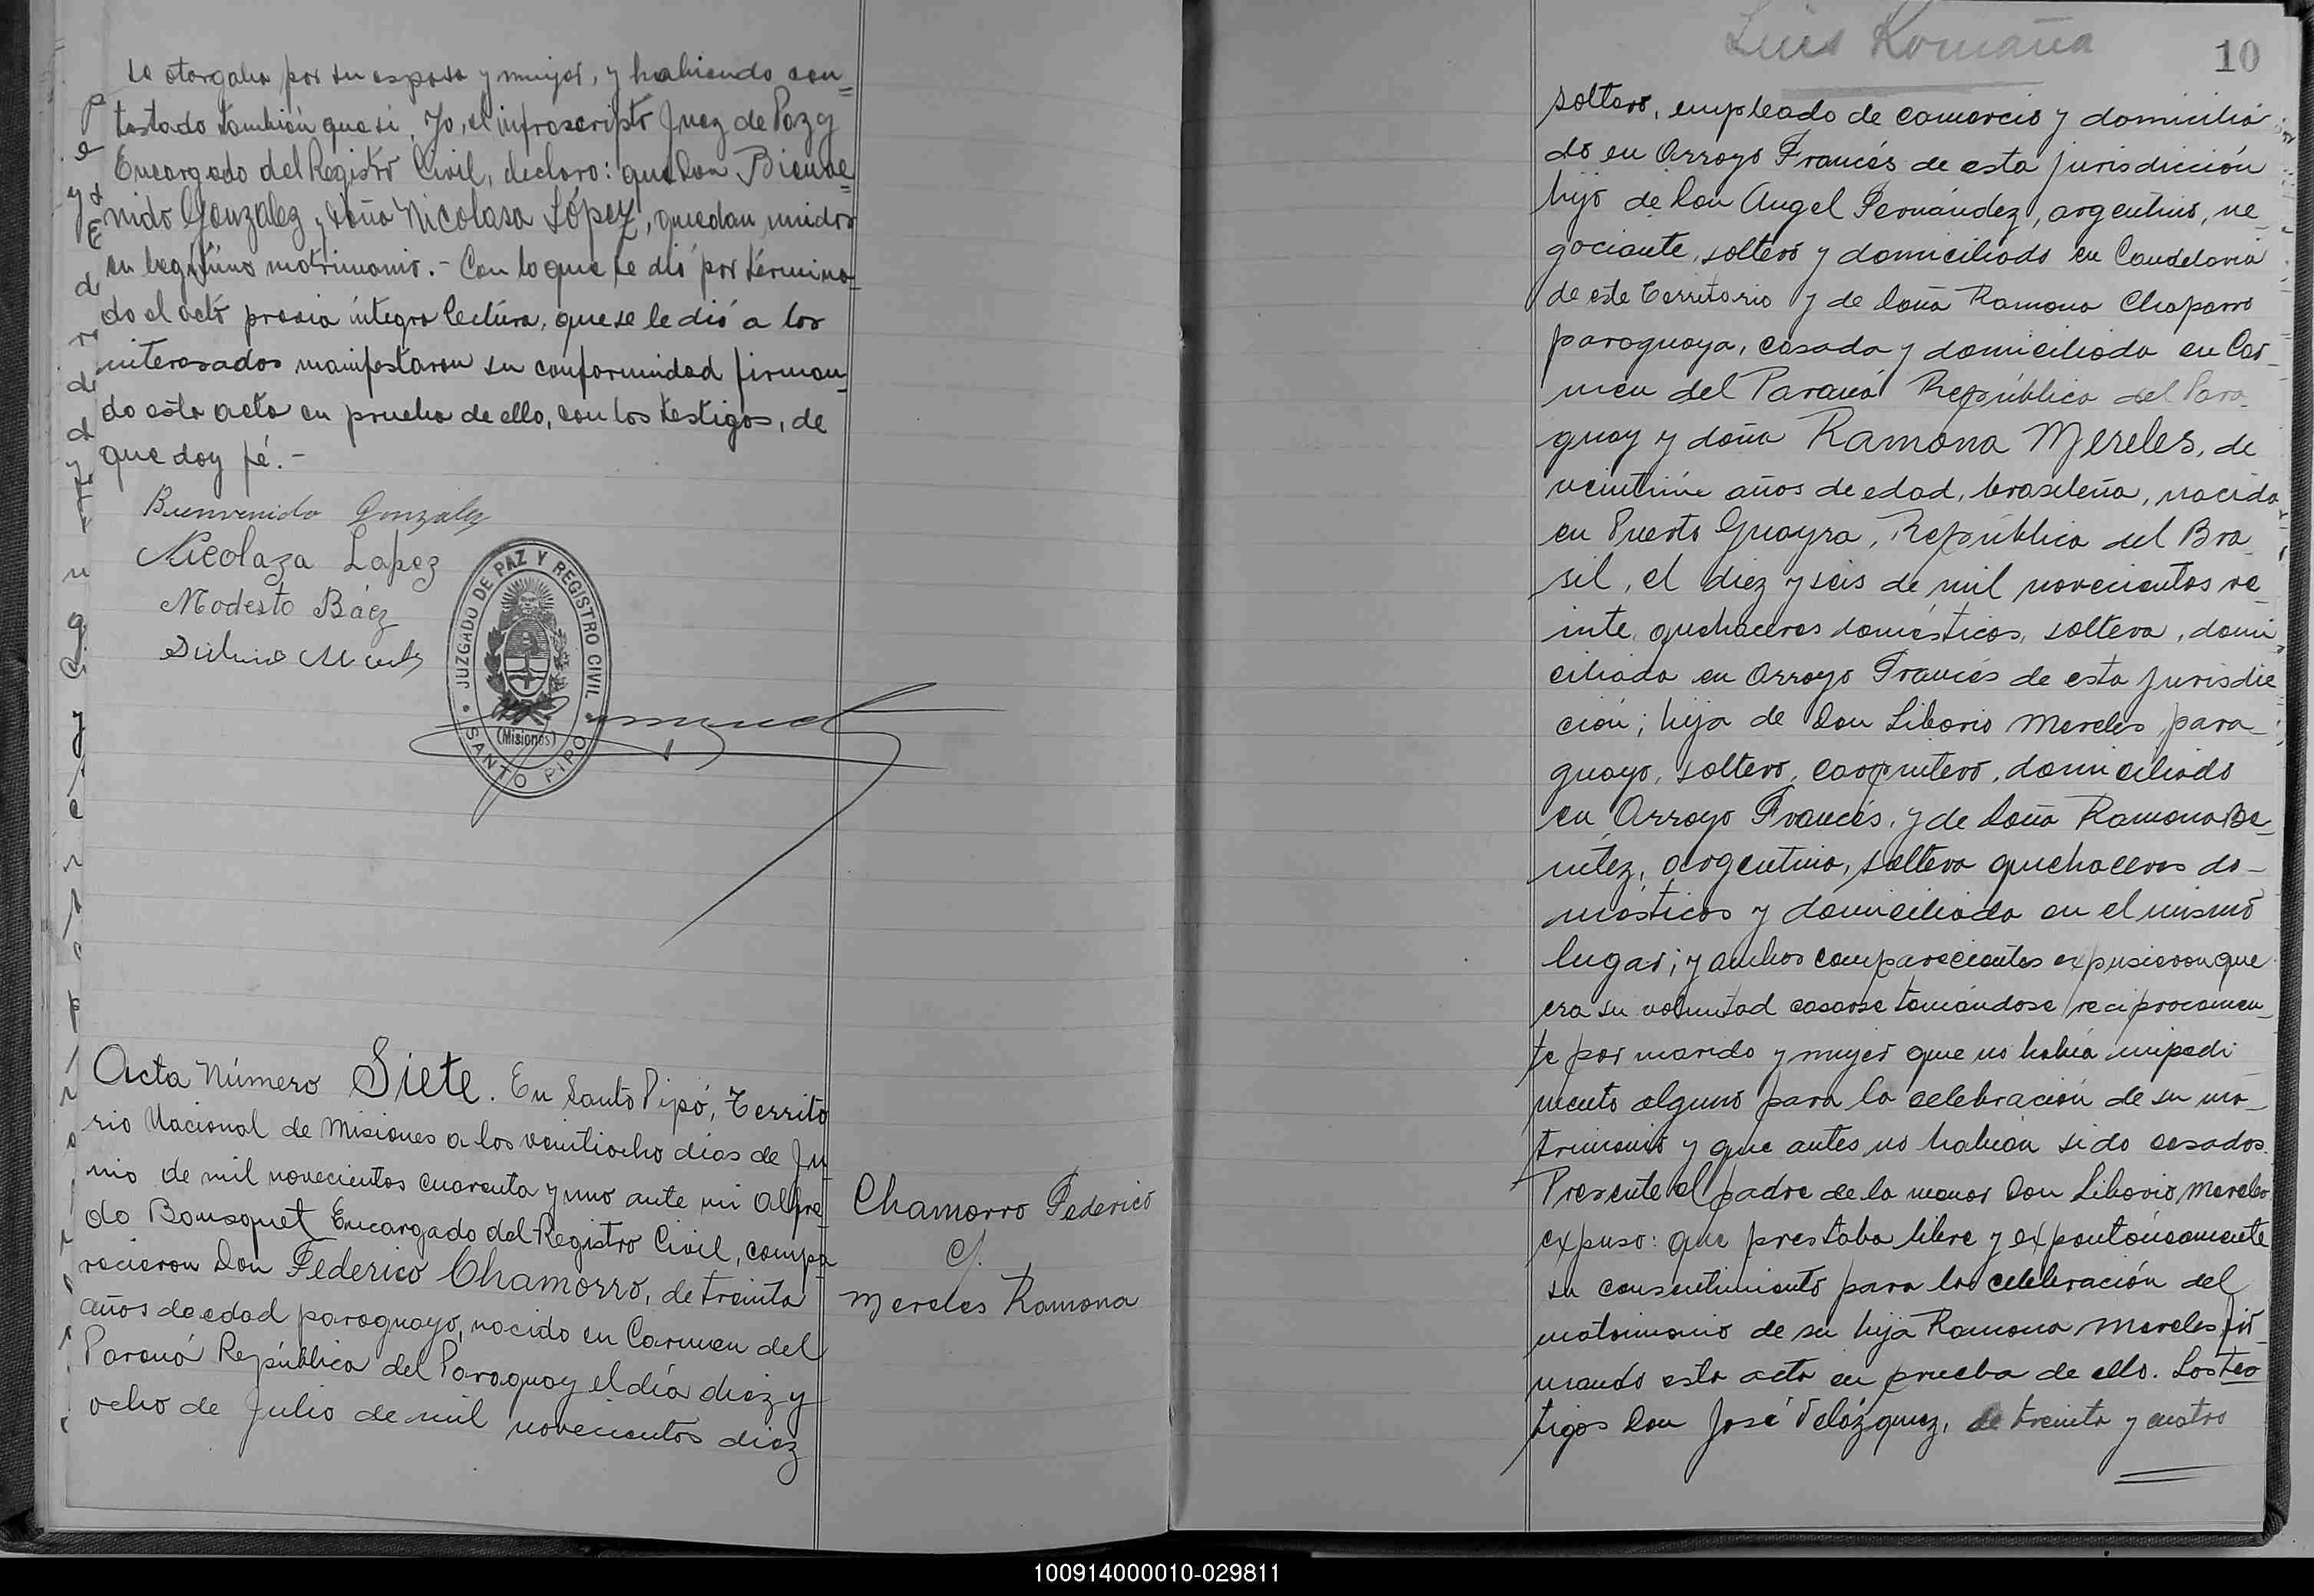 le otorgaba por su esposa y mujer, y habiendo con=
testado también que si, Yo, el infrascripto Juez de Paz y
Encargado del Registro Civil, declaro: que Don Bienve=
nido Gonzalez y doña Nicolasa López, quedan unidos
en legítimo matrimonio.- Con lo que se dió por termina-
do el acto previa íntegra lectura, que se le dió a los
interesados manifestaron su conformidad firman=
do esta acta en prueba de ello, con los testigos, de
que doy fé.-
Bienvenido Gonzalez
Nicolaza Lopez
Modesto Báez
JUZGADO DE PAZ Y REGISTRO CIVIL
(Misiones)
SANTO PIPO
Acta Número Siete. En Santo Pipó, Territo
rio Nacional de Misiones a los veintiocho días de Ju
nio de mil novecientos cuarenta y uno ante mi Alfre-
do Bousquet Encargado del Registro Civil, compa-
recieron Don Federico Chamorro, de treinta
años de edad paraguayo, nacido en Carmen del
Paraná República del Paraguay el día diez y
ocho de Julio de mil novecientos diez
Chamorro Federico
c/.
Mereles Ramona
Luis Romaña
10
soltero, empleado de comercio y domicilia
do en Arroyo Francés de esta jurisdicción
hijo de Don Angel Fernández, argentino, ne_
gociante, soltero y domiciliado en Candelaria
de este Territorio y de Doña Ramona Chaparro
paraguaya, casada y domiciliada en Car_
men del Paraná República del Para_
guay y doña Ramona Mereles, de
veintiún años de edad, brasileña, nacida
en Puerto Guayra, República del Bra_
sil, el diez y seis de mil novecientos ve_
inte, quehaceres domésticos, soltera, domi
ciliada en Arroyo Francés de esta jurisdic
ción; hija de Don Liborio Mereles, para_
guayo, soltero, carpintero, domiciliado
en Arroyo Francés, y de Doña Ramona Be_
nitez, argentina, soltera quehaceres do_
mésticos y domiciliada en el mismo
lugar; y ambos comparecientes expusieron que
era su voluntad casarse tomándose reciprocamen_
te por marido y mujer que no había impedi
mento alguno para la celebración de su ma_
trimonio y que antes no habían sido casados.
Presente el padre de la menor Don Liborio Mereles
expuso: que prestaba libre y expontáneamente
su consentimiento para la celebración del
matrimonio de su hija Ramona Mereles fir_
mando esta acta en prueba de ello. Los tes
tigos Don José Velázquez, de treinta y cuatro
100914000010-029811